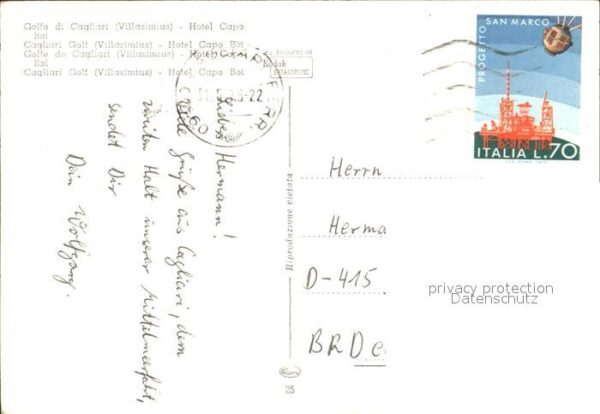 Golfo di Cagliari (Villasimius) - Hotel Capo
Boi
Cagliari Gulf (Villasimius) - Hotel Capo Boi
Golfe de Cagliari (Villasimius) - Hotel Capo
Boi
Cagliari Golf (Villasimius) - Hotel Capo Boi
Kodak
PROGETTO SAN MARCO
ITALIA L.70
-22
60
Lieber Hermann!
Viele Grüße aus Cagliari, dem
zweiten Halt unserer Mittelmeerfahrt,
sendet Dir
Dein Wolfgang.
Riproduzione vietata
25
Herrn
Herma
D-415
BRDe
privacy protection
Datenschutz